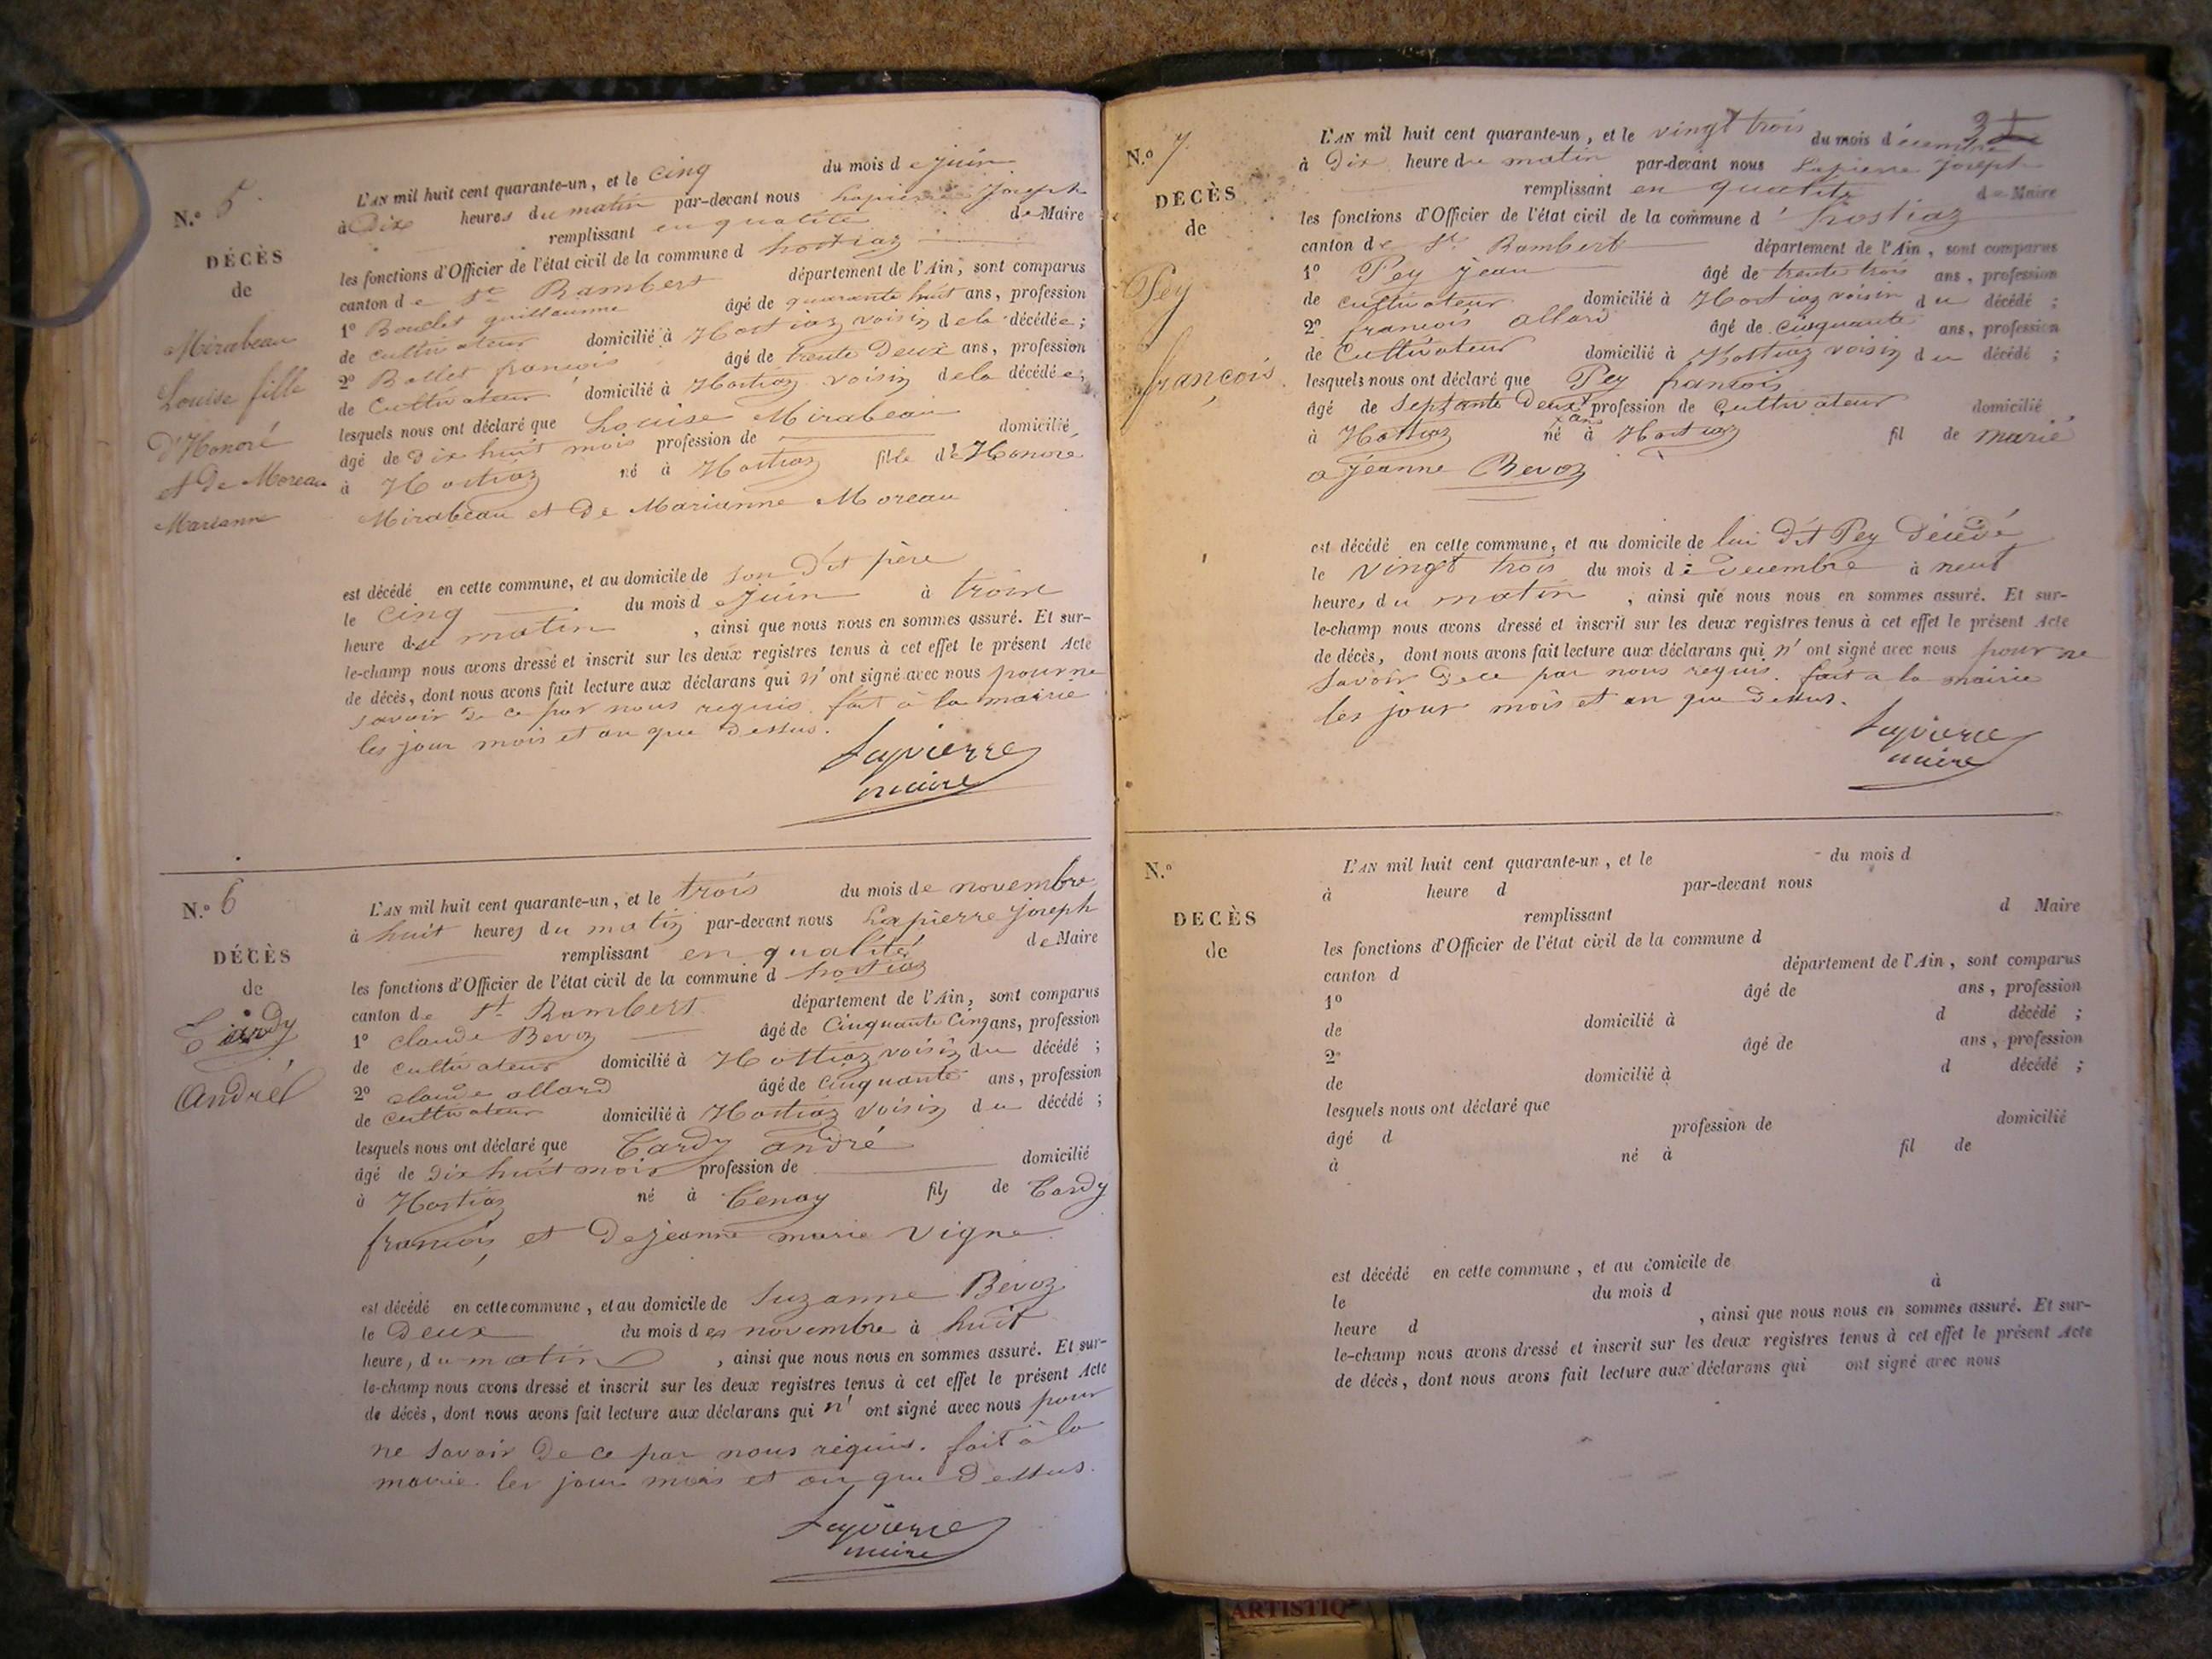 N.º 5
DÉCÈS
de
Mirabeau
Louise fille
d'Honoré
et de Moreau
Marianne
L'AN mil huit cent quarante-un, et le cinq du mois de juin
à Dix heures du matin par-devant nous Lapierre Joseph
remplissant en qualité de Maire
les fonctions d'Officier de l'état civil de la commune d hostiaz
canton de St Rambert département de l'Ain, sont comparus
1º Boullet guillaume âgé de quarante huit ans, profession
de cultivateur domicilié à Hostiaz voisin dela décédée;
2º Ballet francois âgé de trente Deux ans, profession
de Cultivateur domicilié à Hostiaz voisin dela décédée;
lesquels nous ont déclaré que Louise Mirabeau
âgé de dix huit mois profession de domicilié
à Hostiaz né à Hostiaz fille de Honoré
Mirabeau et De Marianne Moreau
est décédé en cette commune, et au domicile de son Dit père
le Cinq du mois de Juin à trois
heure du matin, ainsi que nous nous en sommes assuré. Et sur-
le-champ nous avons dressé et inscrit sur les deux registres tenus à cet effet le présent Acte
de décès, dont nous avons fait lecture aux déclarans qui n' ont signé avec nous pour ne
savoir de ce par nous requis. fait à la mairie
les jour mois et an que dessus.
Lapierre
maire
N.º 6
DÉCÈS
de
Tardy
André
L'AN mil huit cent quarante-un, et le trois du mois de novembre
à huit heures du matin par-devant nous Lapierre joseph
remplissant en qualité de Maire
les fonctions d'Officier de l'état civil de la commune d hostiaz
canton de St Rambert département de l'Ain, sont comparus
1º claude Bevoz âgé de Cinquante Cinq ans, profession
de cultivateur domicilié à Hostiaz voisin du décédé;
2º claude allard âgé de cinquante ans, profession
de cultivateur domicilié à Hostiaz voisin du décédé;
lesquels nous ont déclaré que Tardy andré
âgé de dix huit mois profession de domicilié
à Hostiaz né à Tenay fils de Tardy
francois et De jeanne marie Vigne
est décédé en cette commune, et au domicile de Suzanne Bevoz
le Deux du mois de novembre à huit
heures du matin, ainsi que nous nous en sommes assuré. Et sur-
le-champ nous avons dressé et inscrit sur les deux registres tenus à cet effet le présent Acte
de décès, dont nous avons fait lecture aux déclarans qui n' ont signé avec nous pour
ne savoir De ce par nous requis. fait à la
mairie les jour mois et an que Dessus.
Lapierre
maire
N.º 7
DÉCÈS
de
Pey
françois
L'AN mil huit cent quarante-un, et le vingt trois du mois décembre
à Dix heure du matin par-devant nous Lapierre Joseph
remplissant en qualité de Maire
les fonctions d'Officier de l'état civil de la commune d' hostiaz
canton de St Rambert département de l'Ain, sont comparus
1º Pey jean âgé de trente trois ans, profession
de cultivateur domicilié à Hostiaz voisin du décédé;
2º francois allard âgé de cinquante ans, profession
de Cultivateur domicilié à Hostiaz voisin du décédé;
lesquels nous ont déclaré que Pey francois
âgé de Septante Deux ans profession de Cultivateur domicilié
à Hostiaz né à Hostiaz fil de marié
a jeanne Bevoz
est décédé en cette commune, et au domicile de lui Dit Pey Décédé
le vingt trois du mois de Decembre à neuf
heures du matin, ainsi que nous nous en sommes assuré. Et sur-
le-champ nous avons dressé et inscrit sur les deux registres tenus à cet effet le présent Acte
de décès, dont nous avons fait lecture aux déclarans qui n' ont signé avec nous pour ne
savoir De ce par nous requis. fait a la mairie
les jour mois et an que Dessus.
Lapierre
maire
N.º
DÉCÈS
de
L'AN mil huit cent quarante-un, et le du mois d
à heure d par-devant nous
remplissant d Maire
les fonctions d'Officier de l'état civil de la commune d
canton d département de l'Ain, sont comparus
1º âgé de ans, profession
de domicilié à d décédé;
2º âgé de ans, profession
de domicilié à d décédé;
lesquels nous ont déclaré que
âgé d profession de domicilié
à né à fil de
est décédé en cette commune, et au domicile de
le du mois d à
heure d , ainsi que nous nous en sommes assuré. Et sur-
le-champ nous avons dressé et inscrit sur les deux registres tenus à cet effet le présent Acte
de décès, dont nous avons fait lecture aux déclarans qui ont signé avec nous
ARTISTIQ